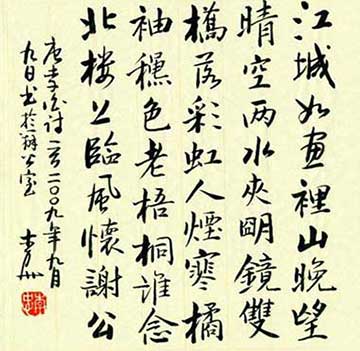 江城如畫裡山晚望
晴空两水夾明鏡雙
橋落彩虹人煙寒橘
袖穐色老梧桐誰念
北楼上臨風懷謝公
唐李白诗一首二〇〇九年九月
九日书於辦公室